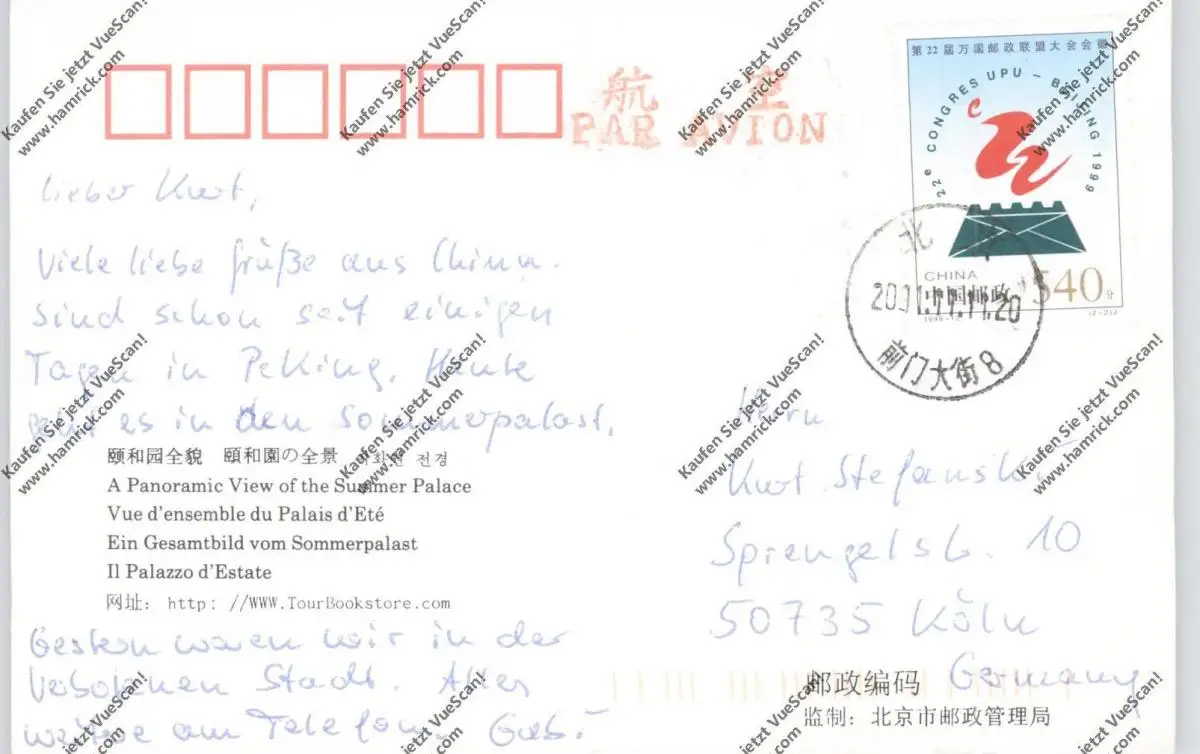 航 空
PAR AVION
第22届万国邮政联盟大会会徽
22e CONGRES UPU - BEIJING 1999
CHINA
中国邮政
540分
1998-12
(2-2)J
北 京
2001.11.11.20
前门大街8
Lieber Kurt,
Viele liebe Grüße aus China.
Sind schon seit einigen
Tagen in Peking. Heute
geht es in den Sommerpalast.
颐和园全貌 頤和園の全景 이화원 전경
A Panoramic View of the Summer Palace
Vue d'ensemble du Palais d'Eté
Ein Gesamtbild vom Sommerpalast
Il Palazzo d'Estate
网址: http: //WWW.TourBookstore.com
Gestern waren wir in der
Verbotenen Stadt. Alles
weitere am Telefon. Gabi
Herrn
Kurt Stefanski
Sprengelstr. 10
50735 Köln
Germany
邮政编码
监制: 北京市邮政管理局
Kaufen Sie jetzt VueScan!
www.hamrick.com
Kaufen Sie jetzt VueScan!
www.hamrick.com
Kaufen Sie jetzt VueScan!
www.hamrick.com
Kaufen Sie jetzt VueScan!
www.hamrick.com
Kaufen Sie jetzt VueScan!
www.hamrick.com
Kaufen Sie jetzt VueScan!
www.hamrick.com
Kaufen Sie jetzt VueScan!
www.hamrick.com
Kaufen Sie jetzt VueScan!
www.hamrick.com
Kaufen Sie jetzt VueScan!
www.hamrick.com
Kaufen Sie jetzt VueScan!
www.hamrick.com
Kaufen Sie jetzt VueScan!
www.hamrick.com
Kaufen Sie jetzt VueScan!
www.hamrick.com